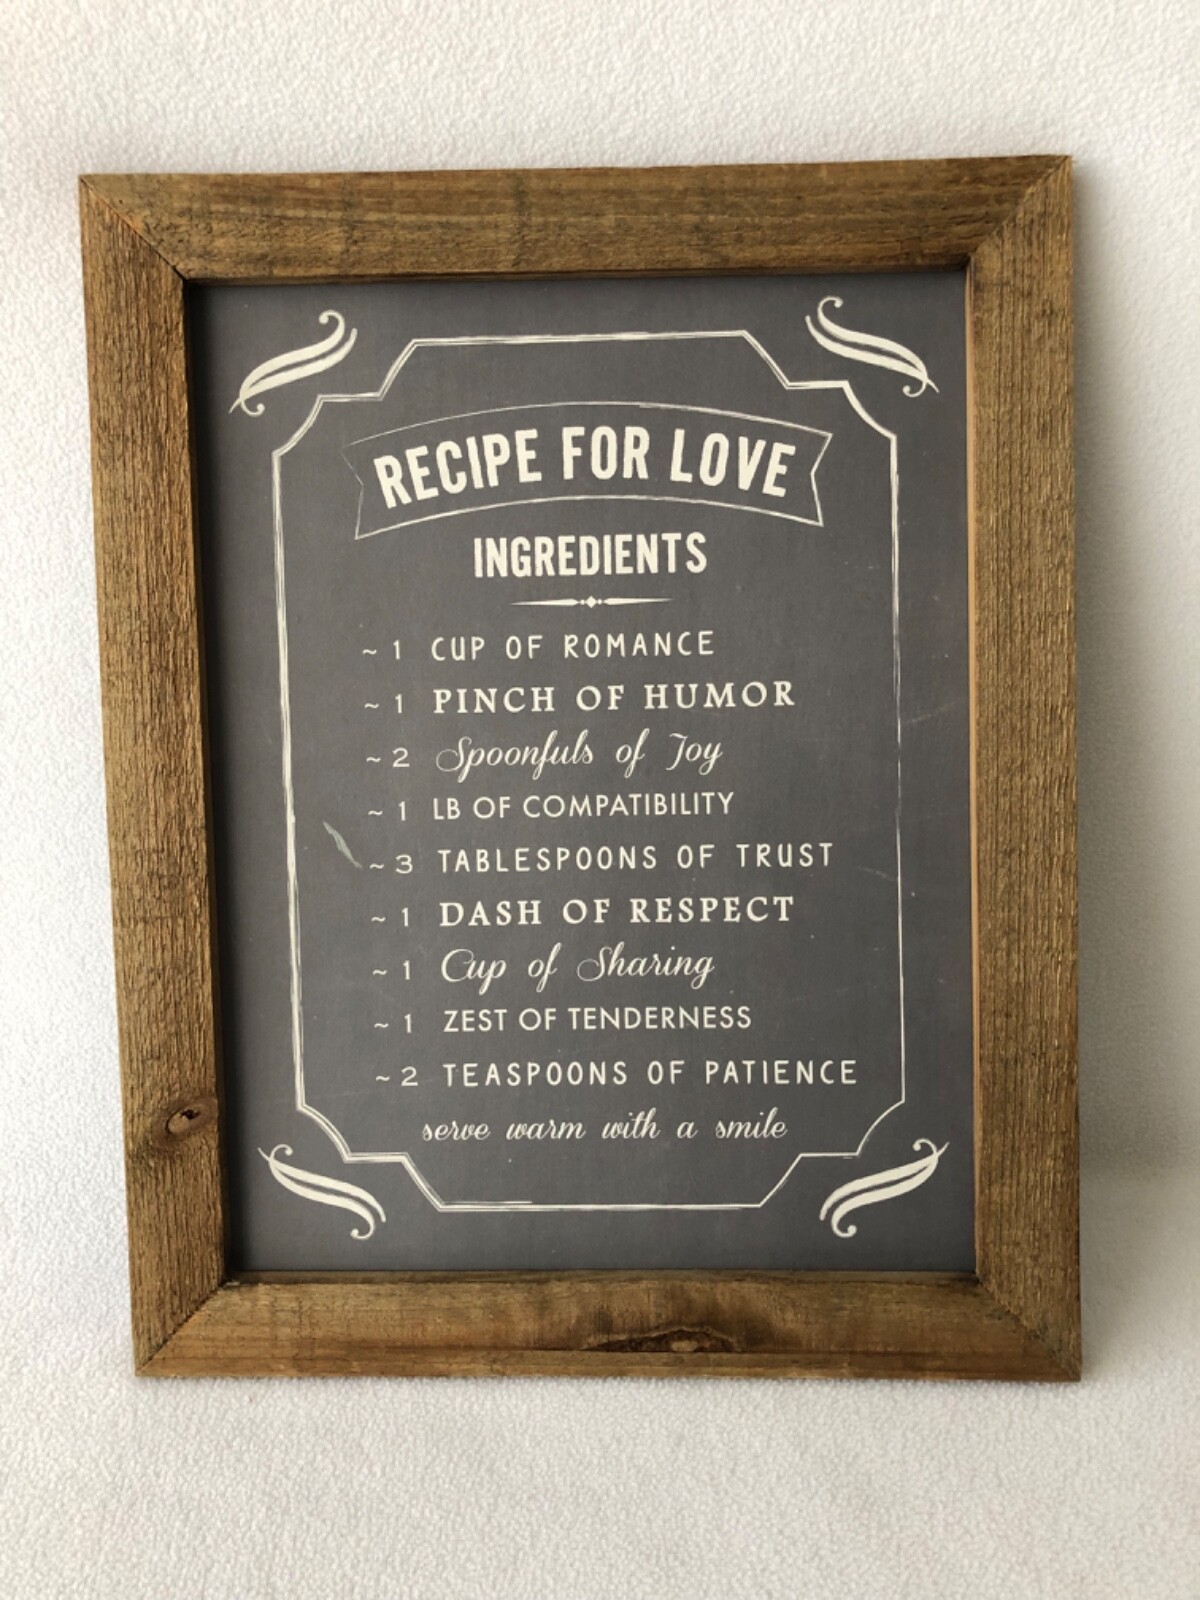 RECIPE FOR LOVE
INGREDIENTS
~ 1 CUP OF ROMANCE
~ 1 PINCH OF HUMOR
~ 2 Spoonfuls of Joy
~ 1 LB OF COMPATIBILITY
~ 3 TABLESPOONS OF TRUST
~ 1 DASH OF RESPECT
~ 1 Cup of Sharing
~ 1 ZEST OF TENDERNESS
~ 2 TEASPOONS OF PATIENCE
serve warm with a smile